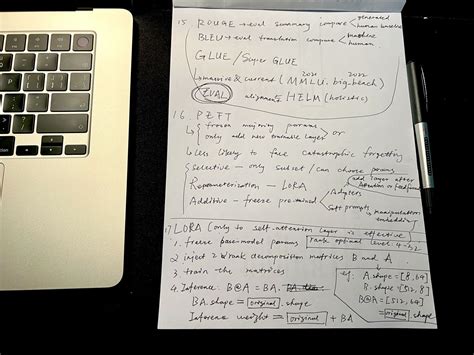 15 ROUGE → eval summary compare < generated
human baseline
BLEU → eval translation compare < machine
human
GLUE / Super GLUE
→ massive & current ( MMLU. big-bench )
2021 2022
EVAL alignments HELM (holistic)
16. PEFT
frozen majority params
only add new trainable layer or
↳ Less likely to face catastrophic forgetting
Selective – only subset / can choose params
Reparameterization – LORA
add layer after
Attention or feedforward
Additive – freeze pre-trained < Adapters
Soft prompts → manipulation
embedding
17 LORA (only to self-attention layer is effective)
1. freeze base-model params rank optimal level: 4-32
2 inject 2 rank decomposition matrices B and A
3 train the matrices
4. Inference: B@A = BA.
BA.shape = original.shape
Inference weight = original + BA
A.shape = [8, 64]
B.shape = [512, 8]
B@A = [512, 64]
= original.shape